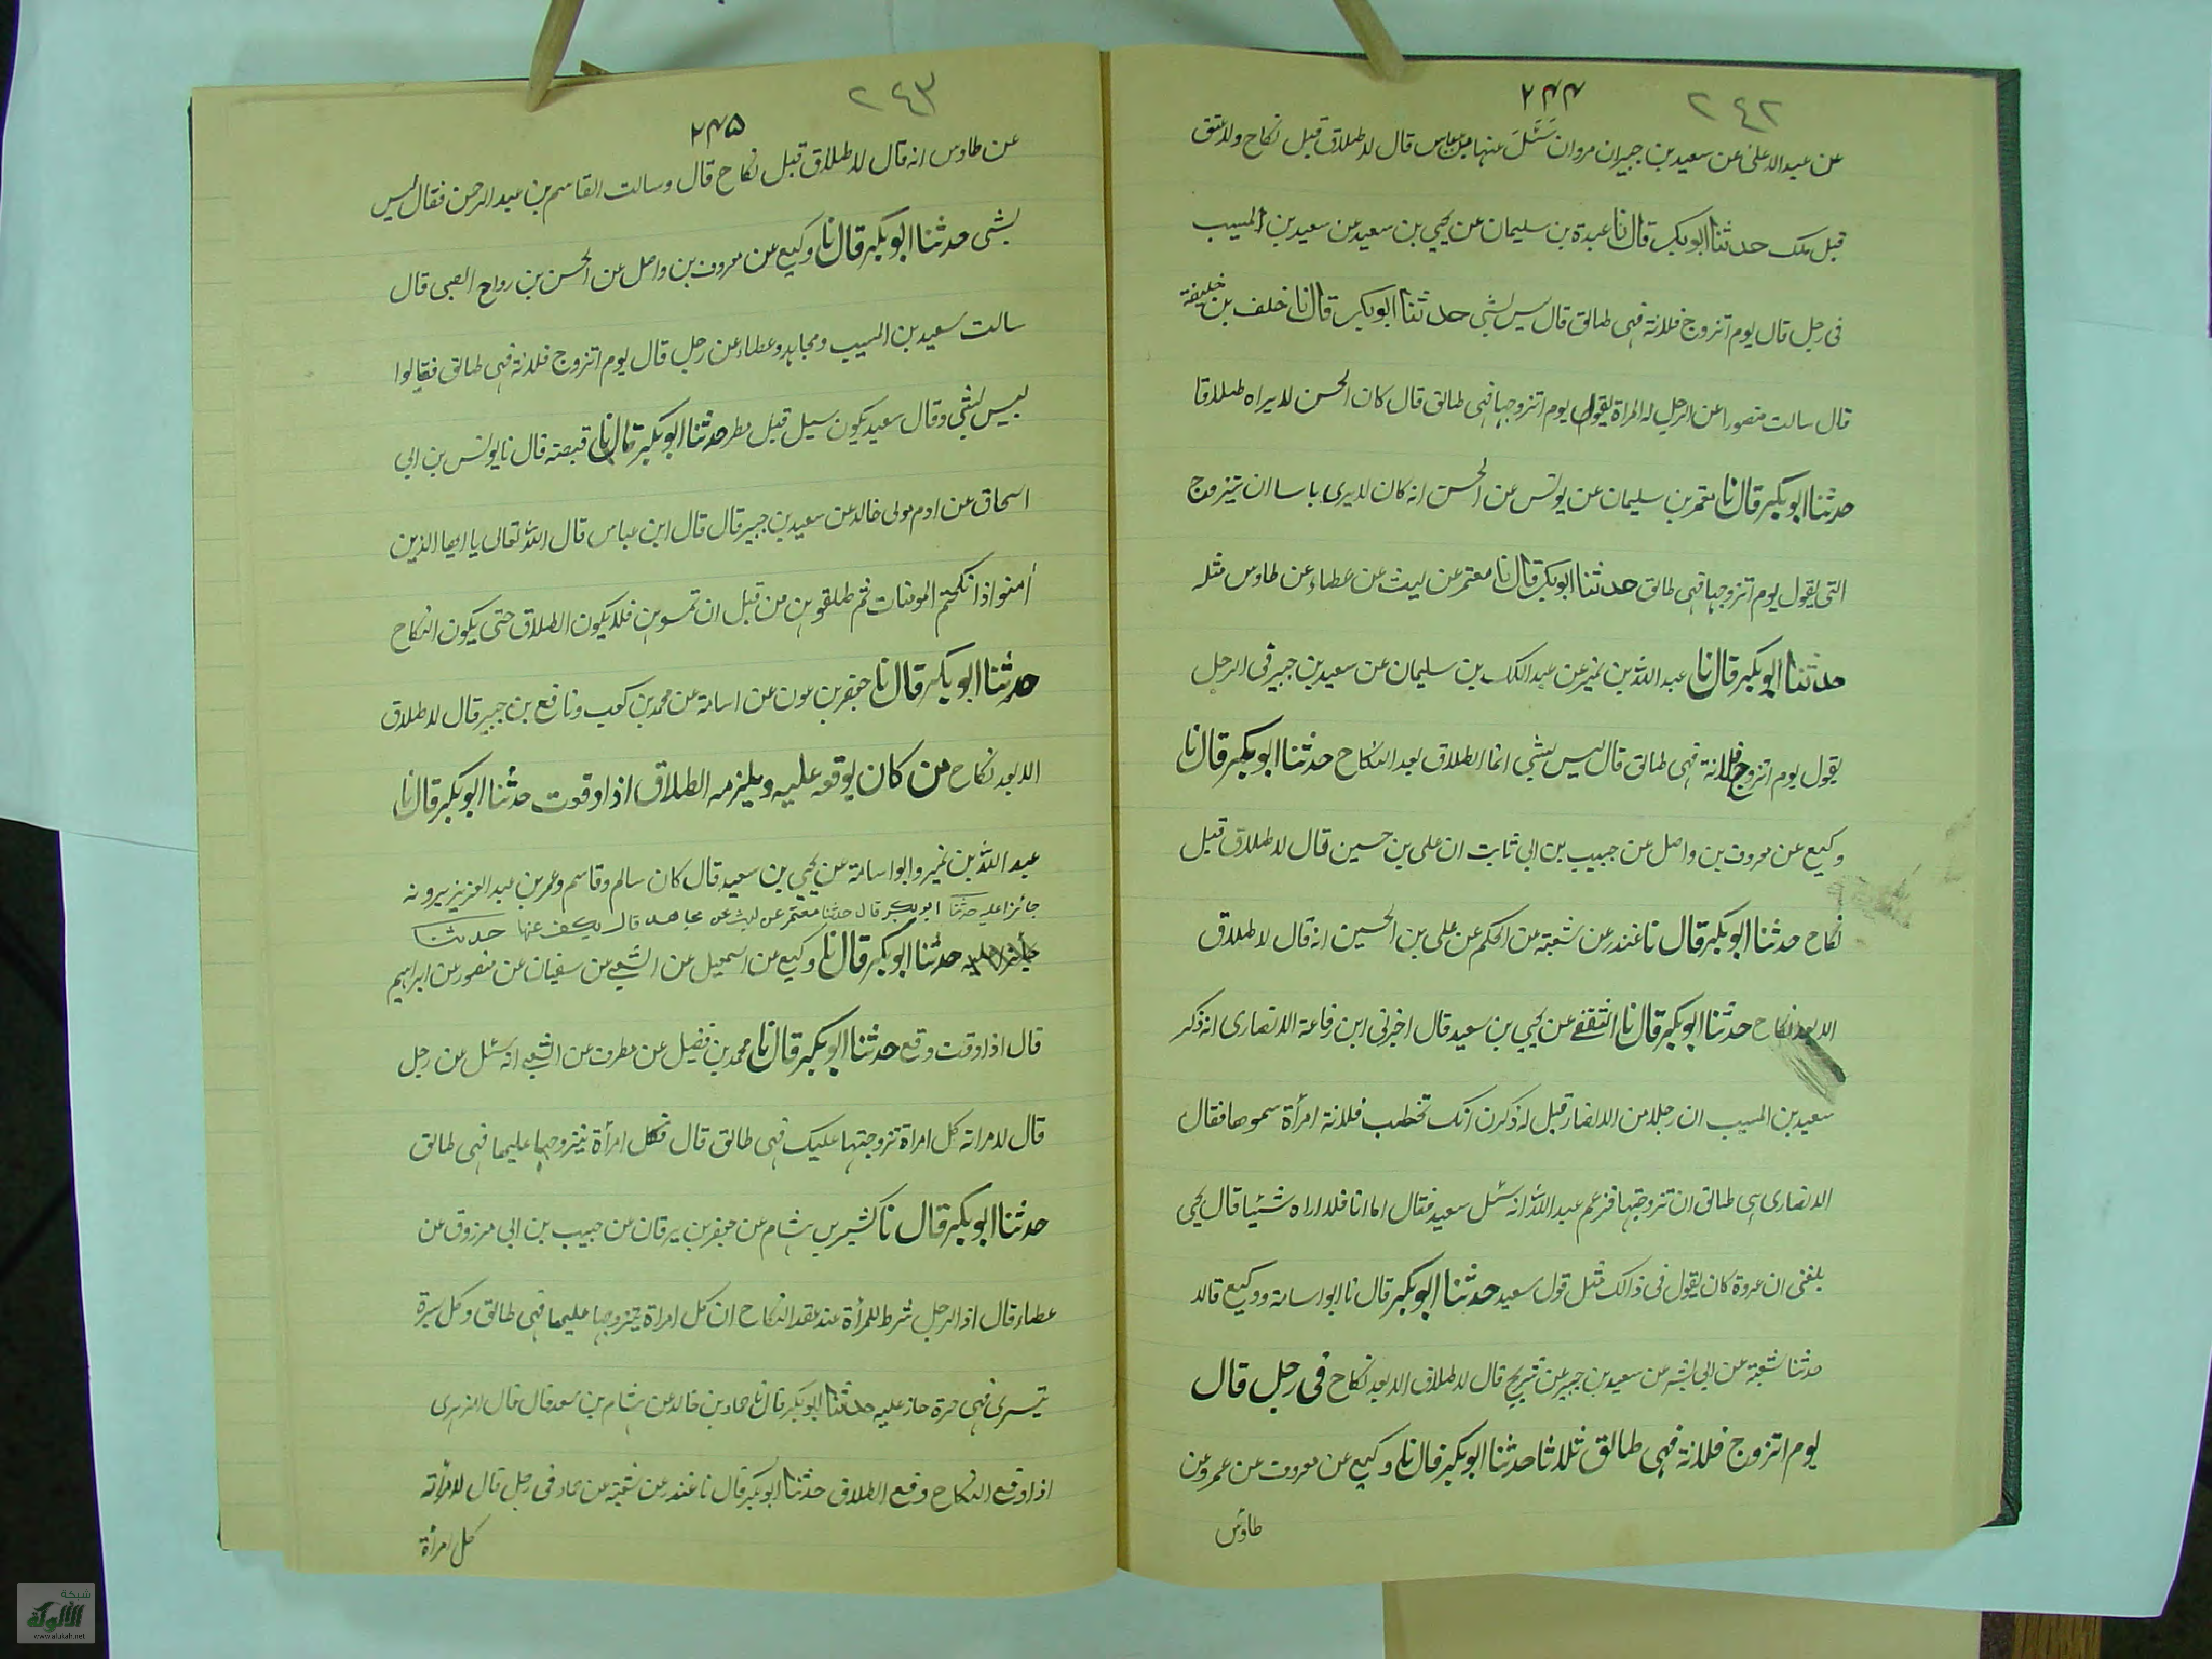 ٢٤٢
٢٤٤
عن عبد الاعلى عن سعيد بن جبير ان مروان سئل عنها ابن عباس قال لا طلاق قبل نكاح ولا عتق
قبل ملك حدثنا ابو بكر قال نا عبدة بن سليمان عن يحيى بن سعيد عن سعيد بن المسيب
فى رجل قال يوم اتزوج فلانة فهى طالق قال ليس بشى حدثنا ابو بكر قال نا خلف بن خليفة
قال سالت منصورا عن الرجل له المراة يقول يوم اتزوجها فهى طالق قال كان الحسن لا يراه طلاقا
حدثنا ابو بكر قال نا معتمر بن سليمان عن يونس عن الحسن انه كان لا يرى باسا ان يتزوج
التى يقول يوم اتزوجها فهى طالق حدثنا ابو بكر قال نا معتمر عن ليث عن عطاء عن طاوس مثله
حدثنا ابو بكر قال نا عبد الله بن نمير عن عبد الملك بن سليمان عن سعيد بن جبير فى الرجل
يقول يوم اتزوج فلانة فهى طالق قال ليس بشى انما الطلاق بعد النكاح حدثنا ابو بكر قال نا
وكيع عن معروف بن واصل عن حبيب بن ابى ثابت ان على بن حسين قال لا طلاق قبل
نكاح حدثنا ابو بكر قال نا غندر عن شعبة عن الحكم عن على بن الحسين انه قال لا طلاق
الا بعد نكاح حدثنا ابو بكر قال نا الثقفى عن يحيى بن سعيد قال اخبرنى ابن رفاعة الانصارى انه ذكر
سعيد بن المسيب ان رجلا من الانصار قيل له ذكرن انك تخطب فلانة امرأة سموها فقال
الانصارى هى طالق ان تزوجتها فزعم عبد الله انه سئل سعيد فقال اما انا فلا اراه شيئا قال يحيى
بلغنى ان عروة كان يقول فى ذالك مثل قول سعيد حدثنا ابو بكر قال نا ابو اسامة ووكيع قالا
حدثنا شعبة عن ابى بشر عن سعيد بن جبير عن شريح قال لا طلاق الا بعد نكاح فى رجل قال
يوم اتزوج فلانة فهى طالق ثلاثا حدثنا ابو بكر قال نا وكيع عن معروف عن عمرو عن
طاوس
٢٤٣
٢٤٥
عن طاوس انه قال لا طلاق قبل نكاح قال وسالت القاسم بن عبد الرحمن فقال ليس
بشى حدثنا ابو بكر قال نا وكيع عن معروف بن واصل عن الحسن بن رواح الضبى قال
سالت سعيد بن المسيب ومجاهد وعطاء عن رجل قال يوم اتزوج فلانة فهى طالق فقالوا
ليس بشى وقال سعيد يكون سيل قبل مطر حدثنا ابو بكر قال نا قبيصة قال نا يونس بن ابى
اسحاق عن ادم مولى خالد عن سعيد بن جبير قال قال ابن عباس قال الله تعالى يا ايها الذين
أمنوا اذا نكحتم المومنات ثم طلقوهن من قبل ان تمسوهن فلا يكون الطلاق حتى يكون النكاح
حدثنا ابو بكر قال نا جعفر بن عون عن اسامة عن محمد بن كعب ونافع بن جبير قال لا طلاق
الا بعد نكاح من كان يوقعه عليه ويلزمه الطلاق اذا وقت حدثنا ابو بكر قال نا
عبد الله بن نمير وابو اسامة عن يحيى بن سعيد قال كان سالم وقاسم وعمر بن عبد العزيز يرونه
جائزا عليه حدثنا ابو بكر قال حدثنا معتمر عن ليث عن مجاهد قال يكف عنها حدثنا
جائزا عليه حدثنا ابو بكر قال نا وكيع عن اسمعيل عن الشعبى عن سفيان عن منصور عن ابراهيم
قال اذا وقت وقع حدثنا ابو بكر قال نا محمد بن فضيل عن مطرف عن الشعبى انه سئل عن رجل
قال لامراته كل امراة تزوجتها عليك فهى طالق قال فكل امرأة يتزوجها عليها فهى طالق
حدثنا ابو بكر قال نا كثير بن هشام عن جعفر بن برقان عن حبيب بن ابى مرزوق عن
عطاء قال اذا الرجل شرط للمرأة عند عقد النكاح ان كل امراة يتزوجها عليها فهى طالق وكل سرية
يتسرى فهى حرة جاز عليه حدثنا ابو بكر قال نا حماد بن خالد عن هشام بن سعد قال قال الزهرى
اذا وقع النكاح وقع الطلاق حدثنا ابو بكر قال نا غندر عن شعبة عن حماد فى رجل قال لامرأته
كل امرأة
شبكة
الألوكة
www.alukah.net